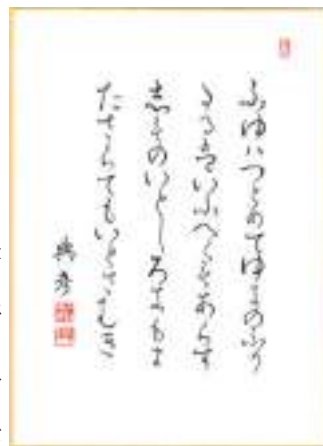 ふゆはつとめてゆきのふり
たるはいふへきにあらす
志ものいとしろきもま
たさらてもいとさむき
典彦